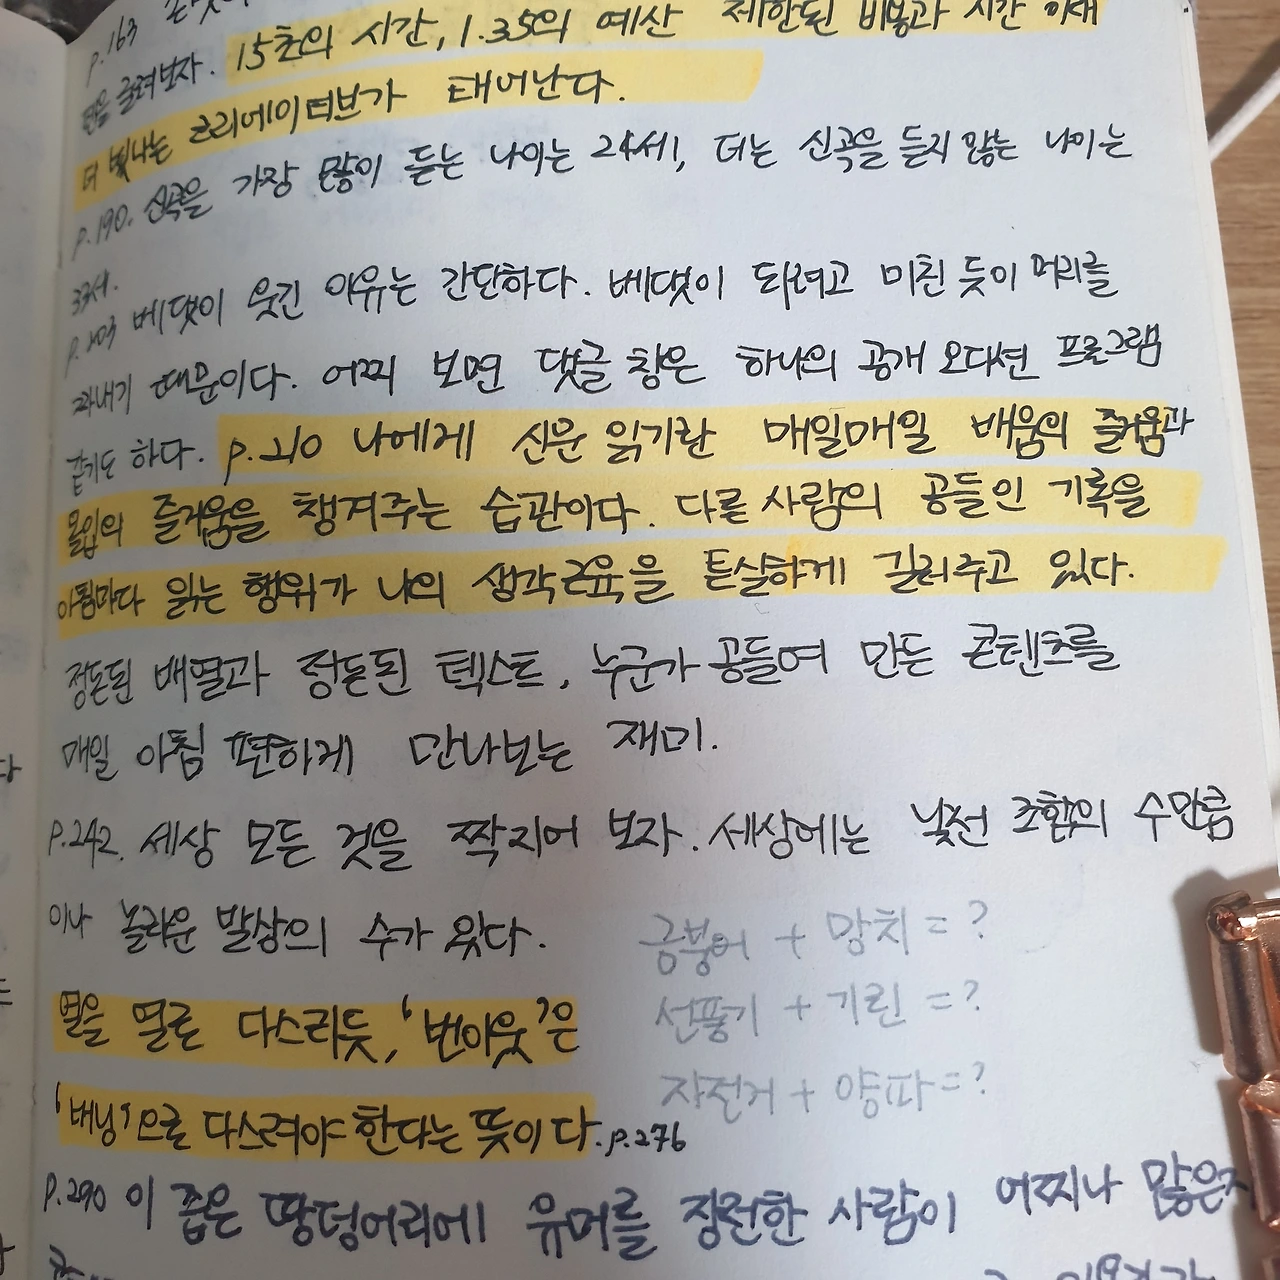 p.163
판을 굴려보자. 15초의 시간, 1.35의 예산 제한된 비용과 시간 아래
더 빛나는 크리에이티브가 태어난다.
p.190. 신곡을 가장 많이 듣는 나이는 24세, 더는 신곡을 듣지 않는 나이는
33세.
p.203 베댓이 웃긴 이유는 간단하다. 베댓이 되려고 미친 듯이 머리를
짜내기 때문이다. 어찌 보면 댓글 창은 하나의 공개 오디션 프로그램
같기도 하다. p.210 나에게 신문 읽기란 매일매일 배움의 즐거움과
몰입의 즐거움을 챙겨주는 습관이다. 다른 사람의 공들인 기록을
아침마다 읽는 행위가 나의 생각근육을 튼실하게 길러주고 있다.
정돈된 배열과 정돈된 텍스트, 누군가 공들여 만든 콘텐츠를
매일 아침 편하게 만나보는 재미.
p.242. 세상 모든 것을 짝지어 보자. 세상에는 낯선 조합의 수만큼
이나 놀라운 발상의 수가 있다.
금붕어 + 망치 = ?
선풍기 + 기린 = ?
자전거 + 양파 = ?
열을 열로 다스리듯, '번아웃'은
'버닝'으로 다스려야 한다는 뜻이다. p.276
p.290 이 좁은 땅덩어리에 유머를 장전한 사람이 어찌나 많은지